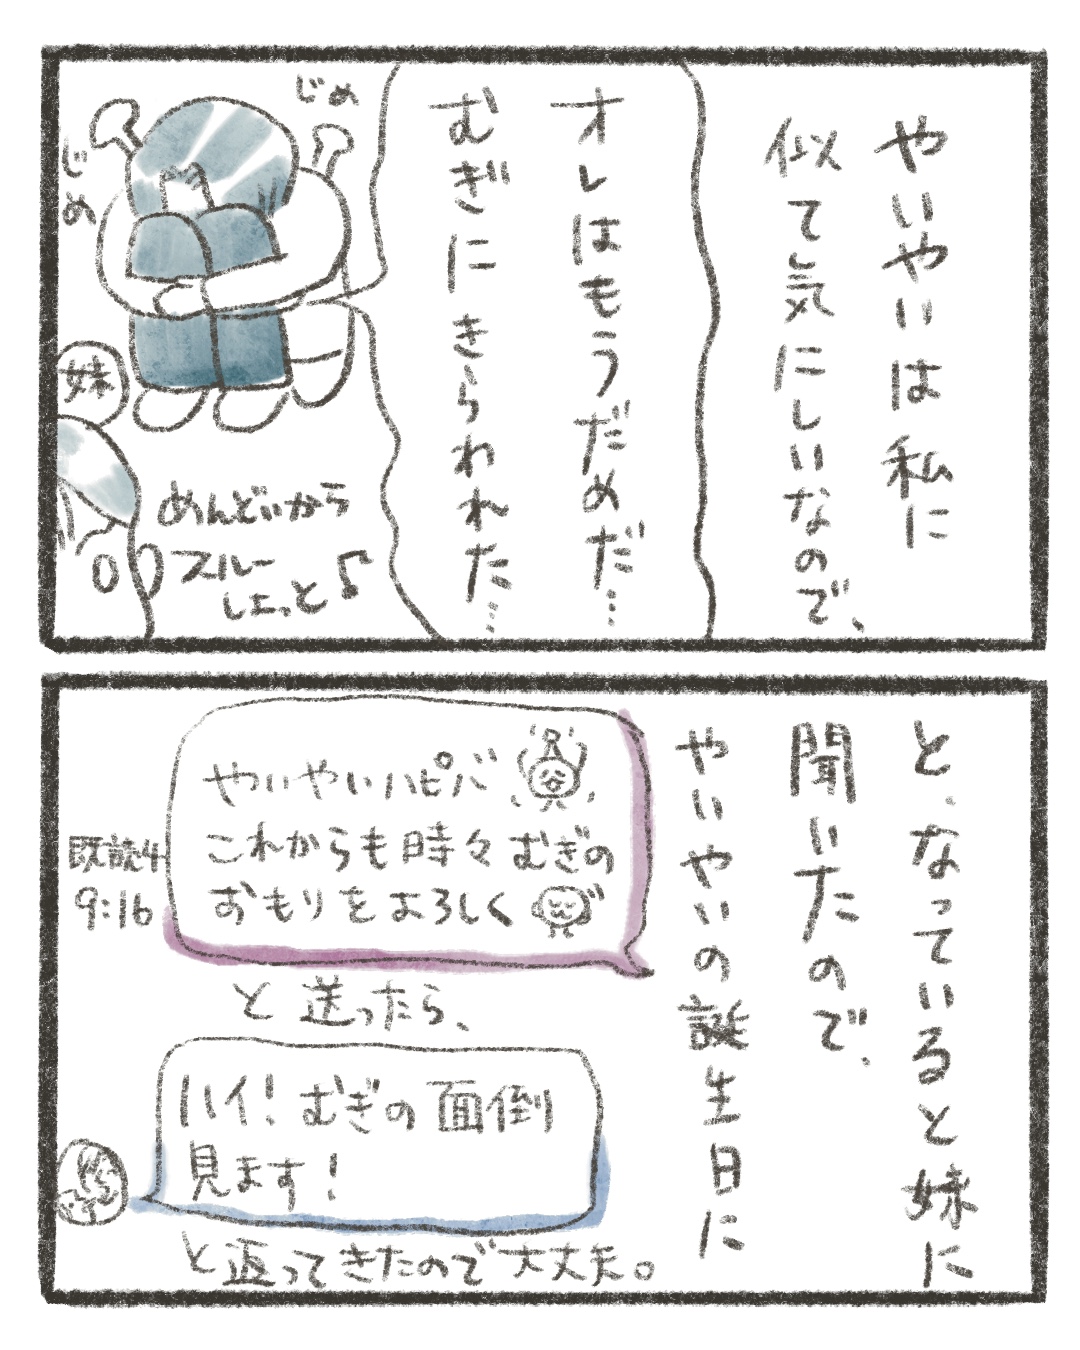 やいやいは私に
似て気にしいなので、
オレはもうだめだ…
むぎに きらわれた…
じめ
じめ
妹
めんどいから
スルー
しよっと♪
と、なっていると妹に
聞いたので、
やいやいの誕生日に
やいやいハピバ
これからも時々むぎの
おもりをよろしく
既読4
9:16
と送ったら、
ハイ!むぎの面倒
見ます!
と返ってきたので大丈夫。